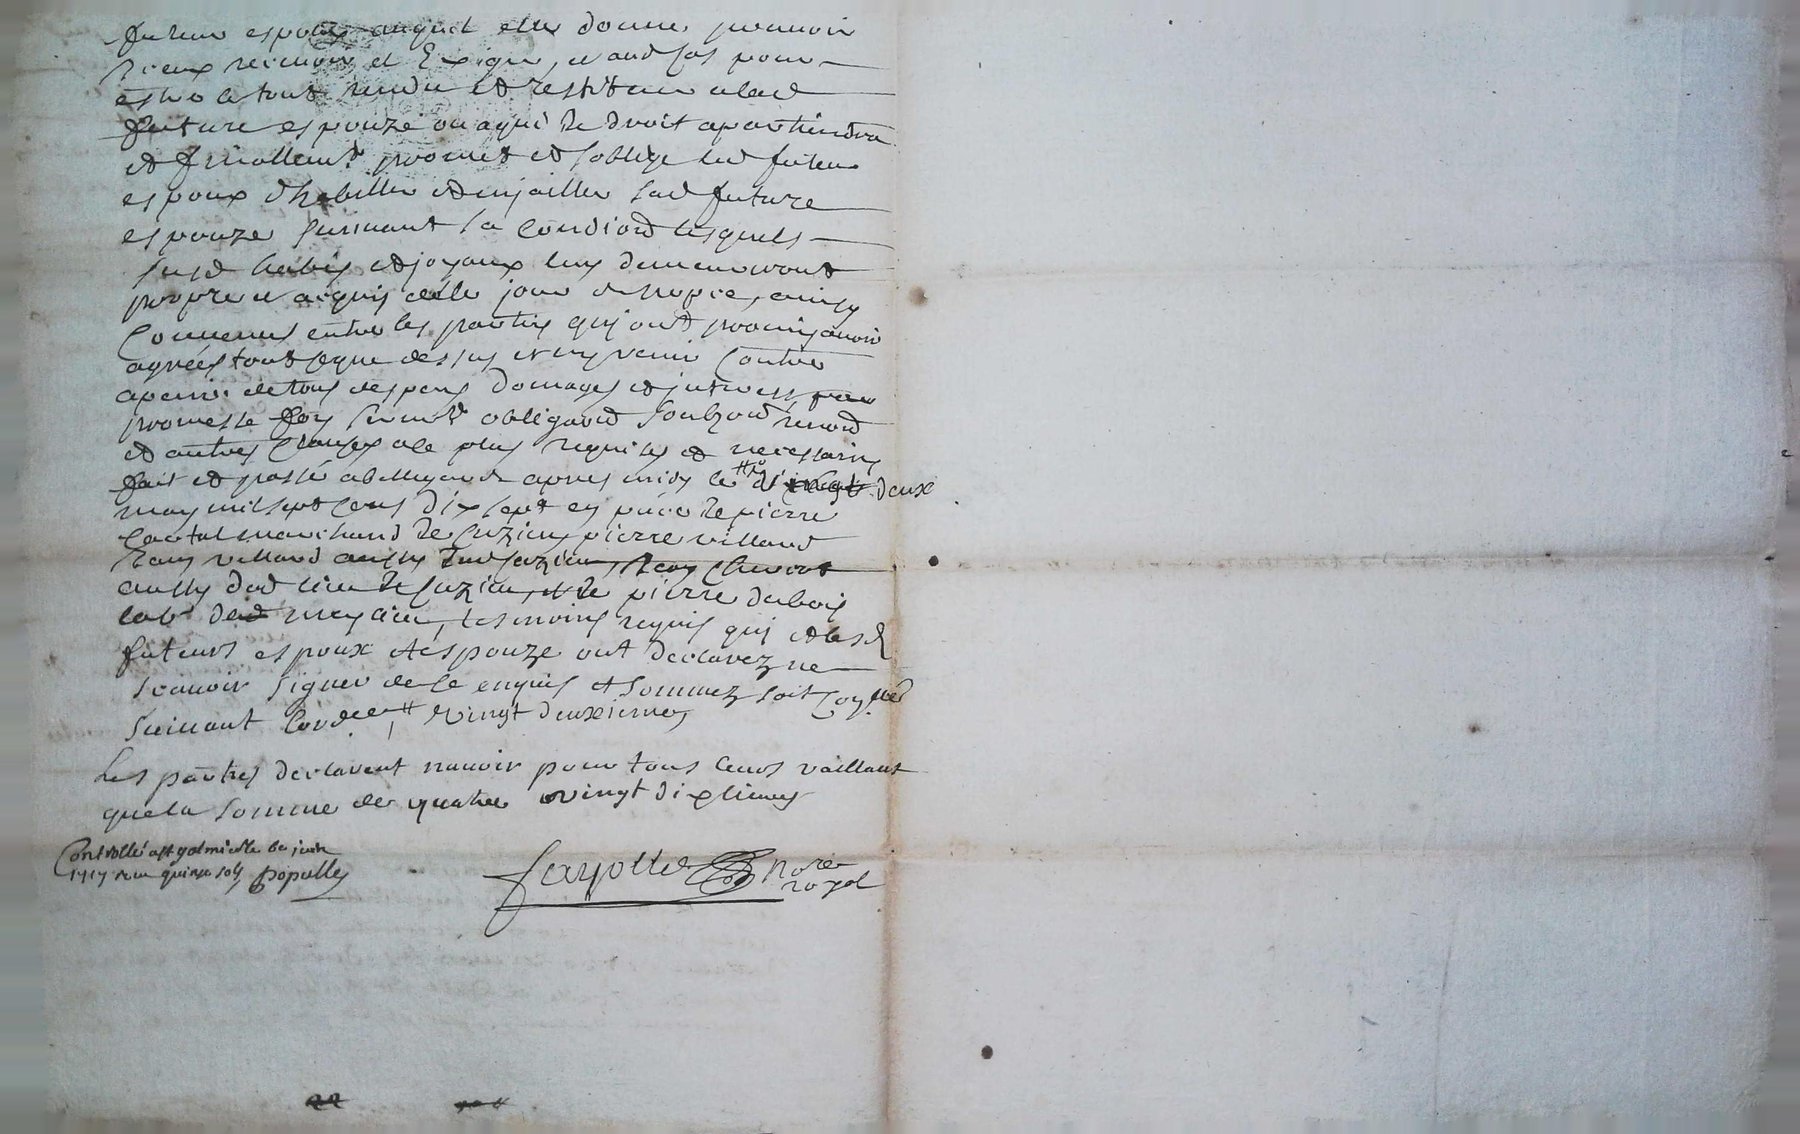 futur espoux auquel elle donne pouvoir
iceux recevoir et Exiger, et aud cas pour
estre le tout rendu et restitue a lad
future espouze ou a qui de droit apartiendra
et finallemt promet et soblige led futeur
espoux dhabiller et enjailler sad future
espouze suivant sa condiond lesquels
susd habis et joyaux luy demeureront
propre et acquis dele jour de nopce, ainsy
Convenus entre les parties quy ont promis avoir
agreés tout ce que dessus et ny venir Contre
a peine de tous despens domages et interess par
promesse foy sermt obligaond soubzond renond
et autres Clauzes ale plus requises et necessaires
fait et passé a apres midy le # vingt deux
may mil sept cens dix sept en p̃nce de pierre
marchand de Cuzieu pierre villard
Jean villard aussy dud Cuzieu, Jean
aussy dud lieu de Cuzieu, et de pierre dubois
labr dud, tesmoins requis quy et lesd
futeurs espoux et espouze ont declarez ne
scavoir signer de ce enquis et sommez soit Coñtlé
suivant lordce # vingt deuxieme,
Les parties declarent navoir pour tous leurs vaillant
que la somme de quatre vingt dix livres
Controllé a st galmier le juin
1717 receu quinze sols populle
fayolle nore
royal